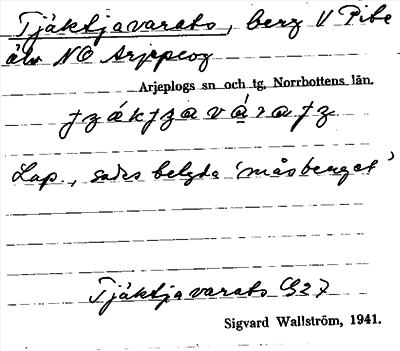 Tjäktjavarats, berg V Pite
älv NO Arjeplog
Arjeplogs sn och tg, Norrbottens län.
Lap., sades betyda 'måsberget'
Tjäktjavarats G27
Sigvard Wallström, 1941.